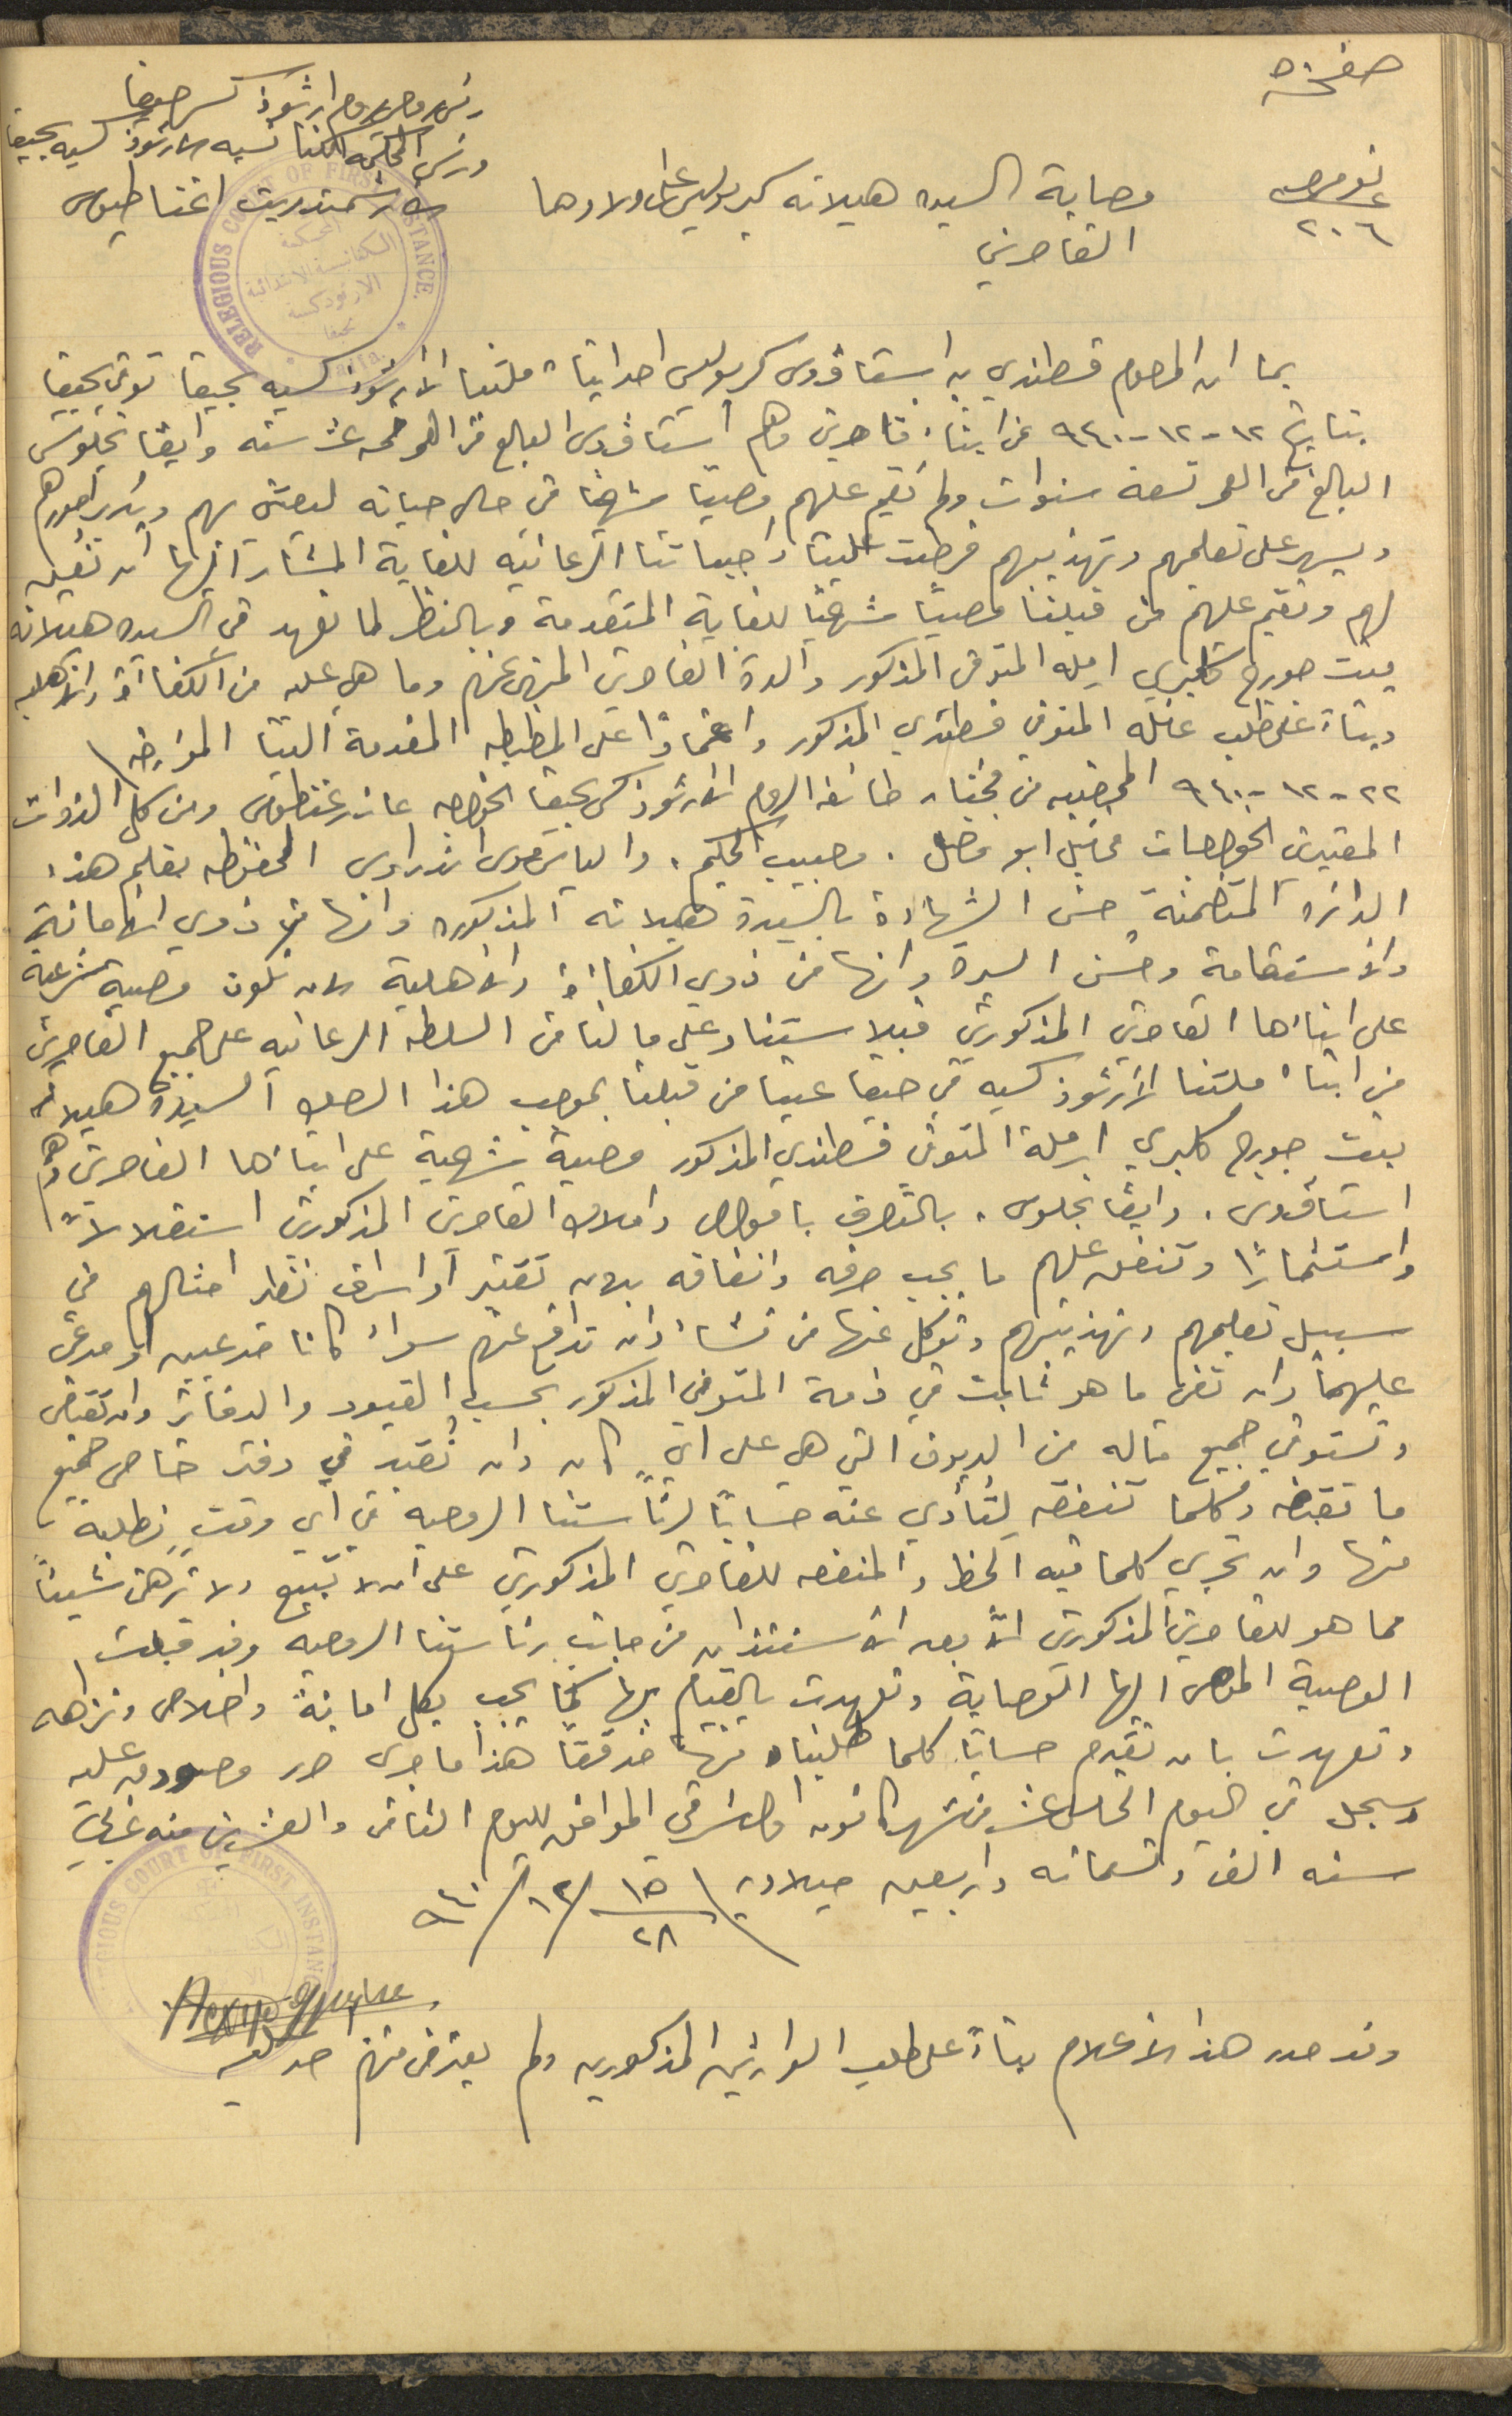 صفحة ٥
رئيس روحي روم ارثوذكس حيفا
ورئيس المحكمة الكنائسيه الارثوذكسيه بحيفا
الارشمندريت اغناطيوس
نومرو
٢٠٦
وصاية السيده هيلانه كيربوليس على اولادها
القاصرين
RELEGIOUS COURT OF FIRST INSTANCE.
المحكمة
الكنائسية الابتدائية
الارثوذكسية
بحيفا
بما ان المرحوم قسطندي بن استافرو كيربوليس احد ابناء ملتنا الارثوذكسيه بحيفا توفي بحيفا
بتاريخ ١٢-١٢-٩٤٠ عن ابناء قاصرين وهم استافرو البالغ من العمر خمسة عشر سنه وايفانجلوس
البالغ من العمر تسعة سنوات ولم يقيم عليهم وصيا شرعيا في حال حياته ليعتني بهم ويدير امورهم
ويسهر على تعليمهم وتهذيبهم فرضت علينا واجباتنا الرعائيه للغاية المشار اليها ان نعين
لهم ونقيم عليهم من قبلنا وصيًا شرعيًا للغاية المتقدمة وبالنظر لما نعهد في السيده هيلانه
بنت جورج كلبري ارملة المتوفي المذكور والدة القاصرين عنهم وما هي عليه من الكفاءة والاهليه
وبناءً على طلب عائلة المتوفي قسطندي المذكور واعتمادًا على المضبطه المقدمة الينا المؤرخه
٢٢-١٢-٩٤٠ الممضيه من مختار طائفة الروم الارثوذكس بحيفا الخواجه ومن كل الذوات
المعتبرين الخواجات مخائيل ابو فضل . وحبيب الحكيم . والياس المحفوظه بقلم هذه
الدائره المتضمنة حسن الشهادة بالسيدة هيلانه المذكوره وانها من ذوي الامانة
والاستقامة وحسن السيره وانها من ذوي الكفاءة والاهلية لان تكون وصية شرعية
على ابنائها القاصرين المذكورين فبالاستناد على ما لنا من السلطه الرعائيه على جميع القاصرين
من ابناء ملتنا الارثوذكسيه في حيفا عينا من قبلنا بموجب هذا الصك السيدة هيلانه
بنت جورج كلبري ارملة المتوفي قسطندي المذكور وصية شرعية على ابنائها القاصرين وهم
استافرو . وايفانجلوس . بالتصرف باموال واملاك القاصرين المذكورين استغلالاً
واستثمارًا وتنفق عليهم ما يجب صرفه وانفاقه بدون تقتير او اسراف نظير امثالهم في
سبيل تعليمهم وتهذيبهم وتوكل عنها من تشاء وان تدافع عنهم سواء كانا مدعيين او مدعى
عليهما وان تفي ما هو ثابت في ذمة المتوفي المذكور بحسب القيود والدفاتر وان تقبض
وتستوفي جميع ماله من الديون التي هي على ايٍ كان وان تقيد في دفتر خاص جميع
ما تقبضه وكلما تنفقه لتأدي عنه حسابًا لرئاستنا الروحيه في اي وقتٍ نطلبه
منها وان تجري كلما فيه الحظ والمنفعه للقاصرين المذكورين على ان لا تبيع ولا ترهن شيئًا
مما هو للقاصرين المذكورين الا بعد الاستئذان من جانب رئاستنا الروحيه وقد قبلت
الوصية الموصى اليها الوصاية وتعهدت بالقيام بها كما يجب بكل امانة واخلاص ونزاهه
وتعهدت بان تقدم حسابًا كلما طلبناه منها مدققًا هذا ما جرى حرر
وسجل في اليوم الخامس عشر من شهر كانون اول شرقي الموافق لليوم الثامن والعشرين منه غربي
سنه الف وتسعمائه واربعين ميلاديه ١٥/٢٨ /١٢/ ٩٤٠
RELEGIOUS COURT OF FIRST INSTANCE
وقد صدر هذا الاعلام بناءً على طلب الوارثين المذكورين ولم يعترض منهم احد